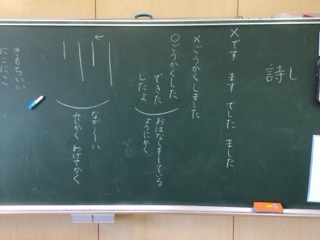 詩し
×です ます でした ました
×ごうかくしました
○ごうかくした
できた
したよ
おはなししている
ようにかく
ながーい
みじかく わけてかく
きもちいい
にこにこ